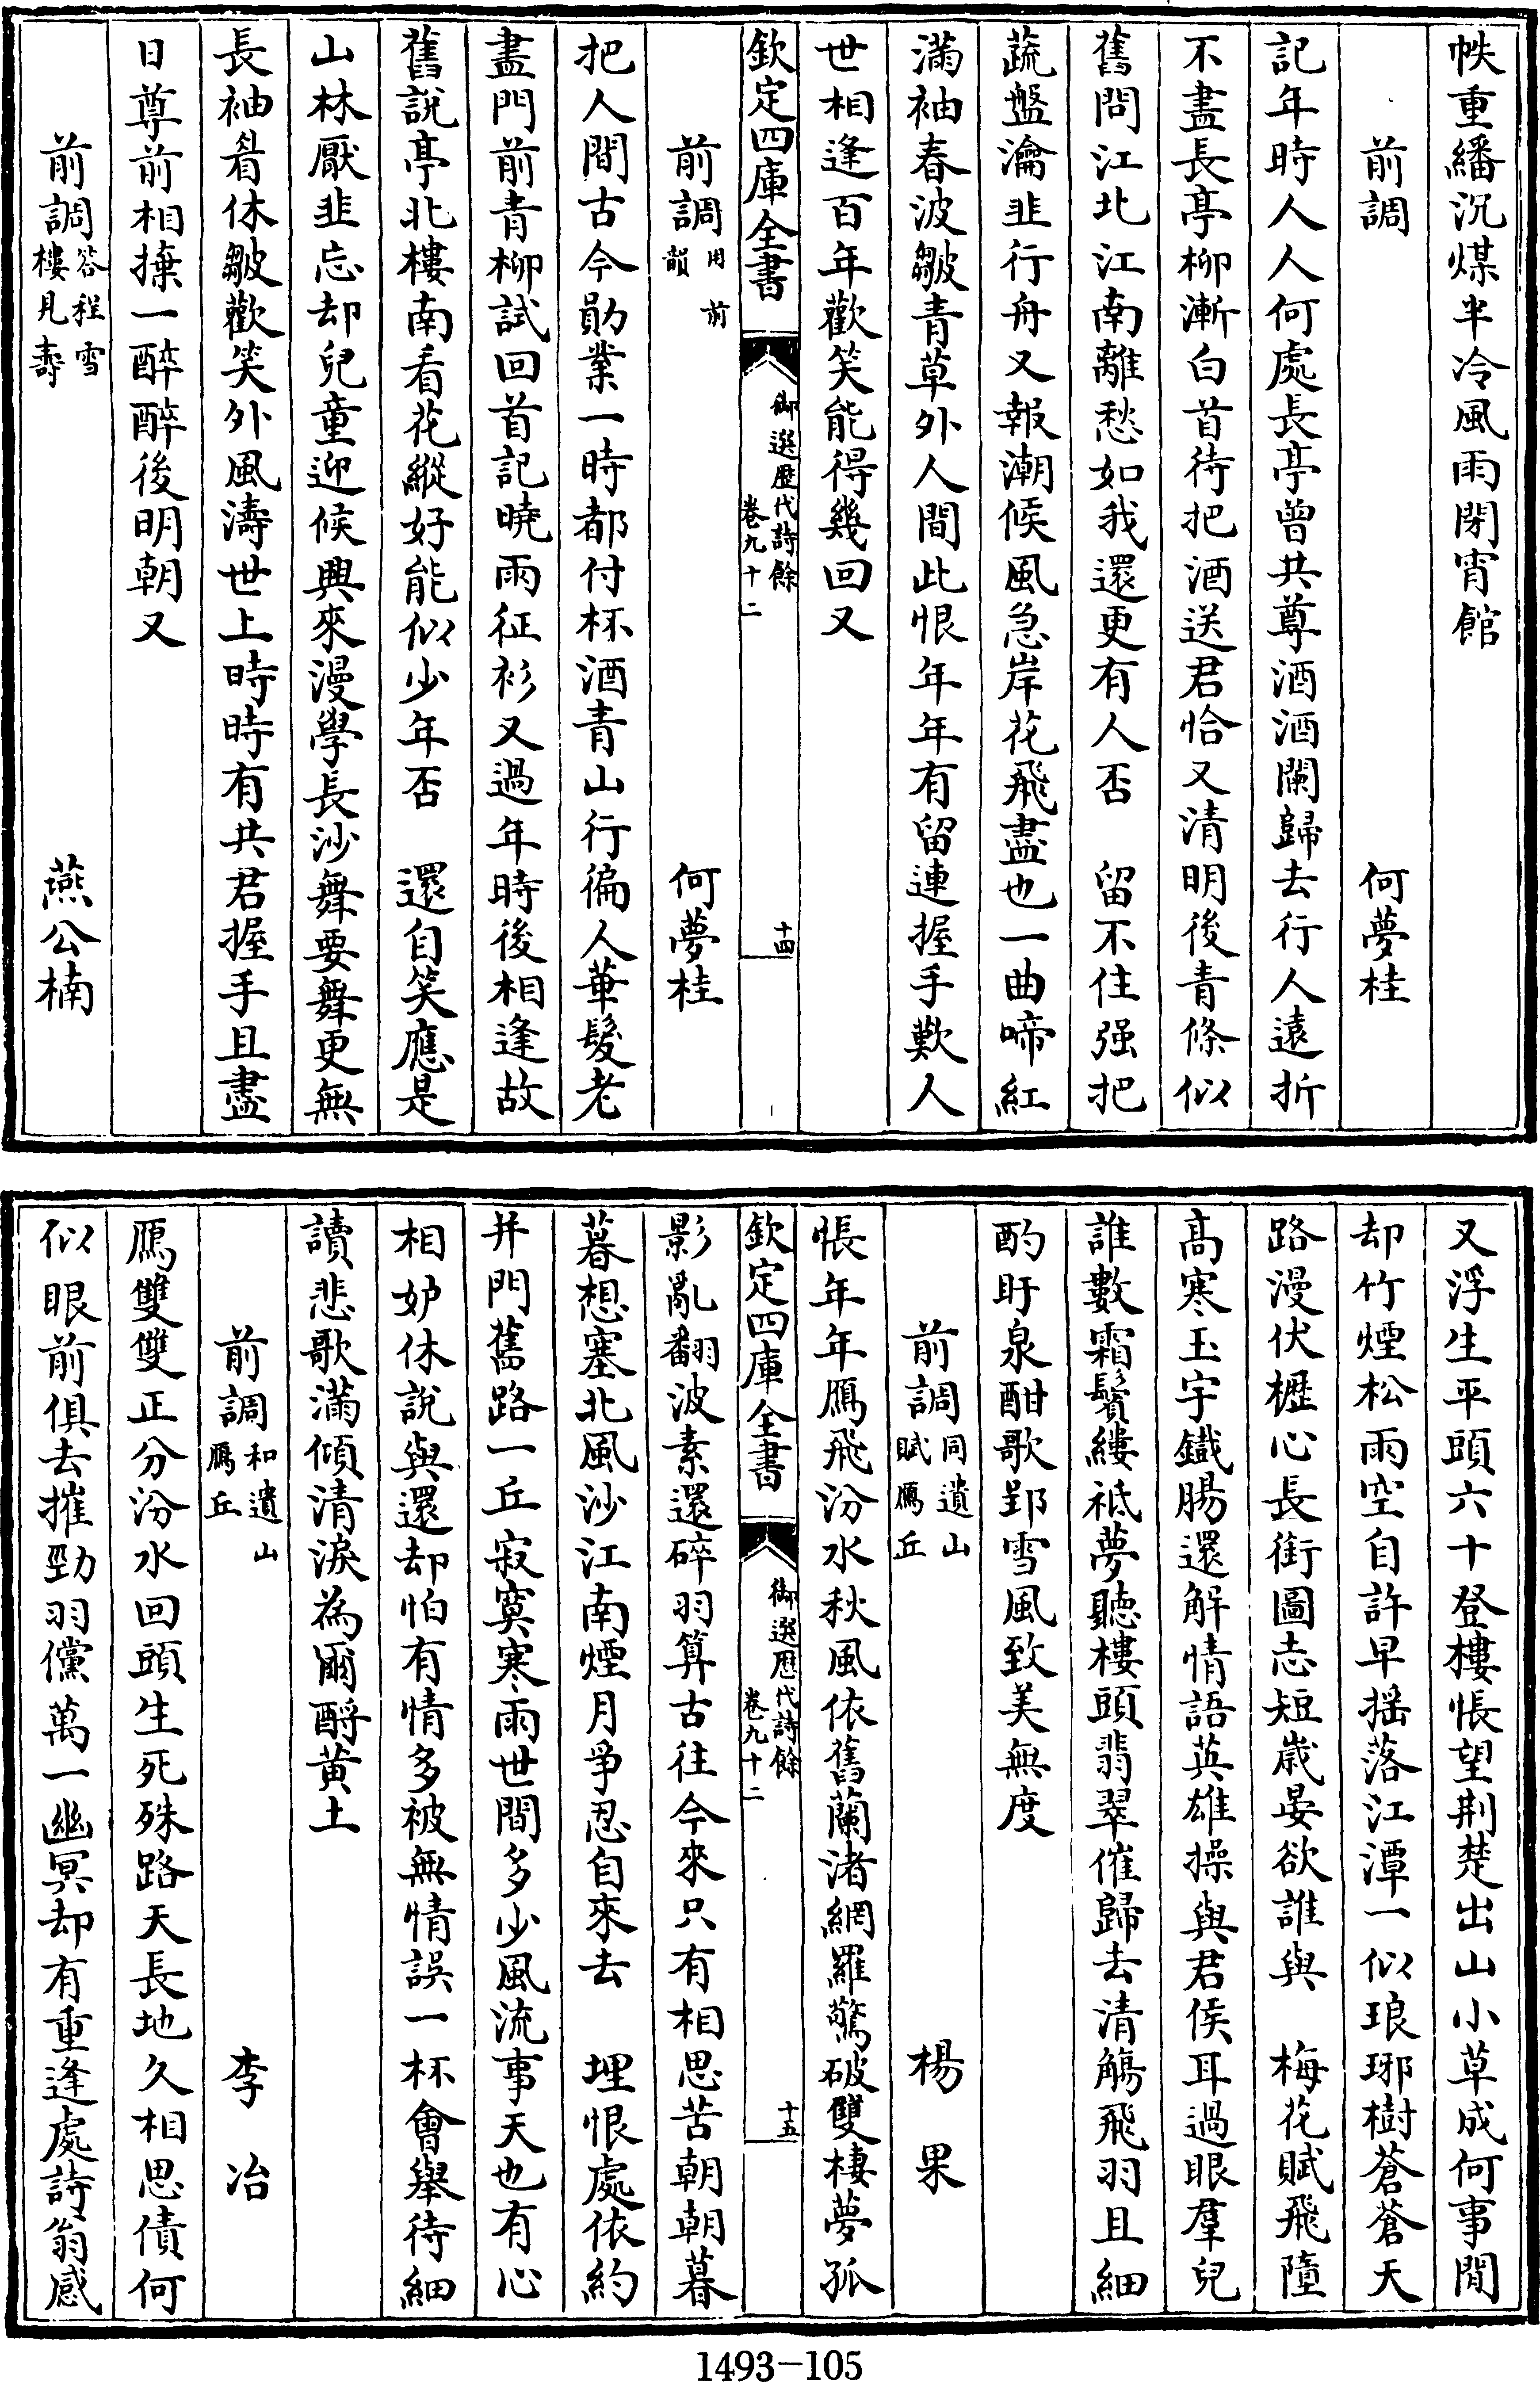 帙重繙沉煤半冷風雨閉宵館
前調　何夢桂
記年時人人何處長亭曾共尊酒酒闌歸去行人遠折
不盡長亭柳漸白首待把酒送君恰又清明後青條似
舊問江北江南離愁如我還更有人否　留不住强把
蔬盤瀹韭行舟又報潮候風急岸花飛盡也一曲啼紅
滿袖春波皺青草外人間此恨年年有留連握手歎人
世相逢百年歡笑能得幾回又
欽定四庫全書　御選歷代詩餘　卷九十二　十四
前調用前韻　何夢桂
把人間古今勛業一時都付杯酒青山行徧人華髮老
盡門前青柳試回首記曉雨征衫又過年時後相逢故
舊說亭北樓南看花縱好能似少年否　還自笑應是
山林厭韭忘却兒童迎候興來漫學長沙舞要舞更無
長袖眉休皺歡笑外風濤世上時時有共君握手且盡
日尊前相擁一醉醉後明朝又
前調答程雪樓見壽　燕公楠
又浮生平頭六十登樓悵望荆楚出山小草成何事閒
却竹煙松雨空自許早摇落江潭一似琅琊樹蒼蒼天
路漫伏櫪心長銜圖志短歲晏欲誰與　梅花賦飛墮
高寒玉宇鐵腸還解情語英雄操與君侯耳過眼羣兒
誰數霜鬢縷祗夢聽樓頭翡翠催歸去清觴飛羽且細
酌盱泉酣歌郢雪風致美無度
前調同遺山賦鴈丘　楊果
悵年年鴈飛汾水秋風依舊蘭渚網羅驚破雙棲夢孤
欽定四庫全書　御選歷代詩餘　卷九十二　十五
影亂翻波素還碎羽算古往今來只有相思苦朝朝暮
暮想塞北風沙江南煙月爭忍自來去　埋恨處依約
并門舊路一丘寂寞寒雨世間多少風流事天也有心
相妒休說與還却怕有情多被無情誤一杯會舉待細
讀悲歌滿傾清淚為爾酹黃土
前調和遺山鴈丘　李冶
鴈雙雙正分汾水回頭生死殊路天長地久相思債何
似眼前俱去摧勁羽儻萬一幽冥却有重逢處詩翁感
1493－105